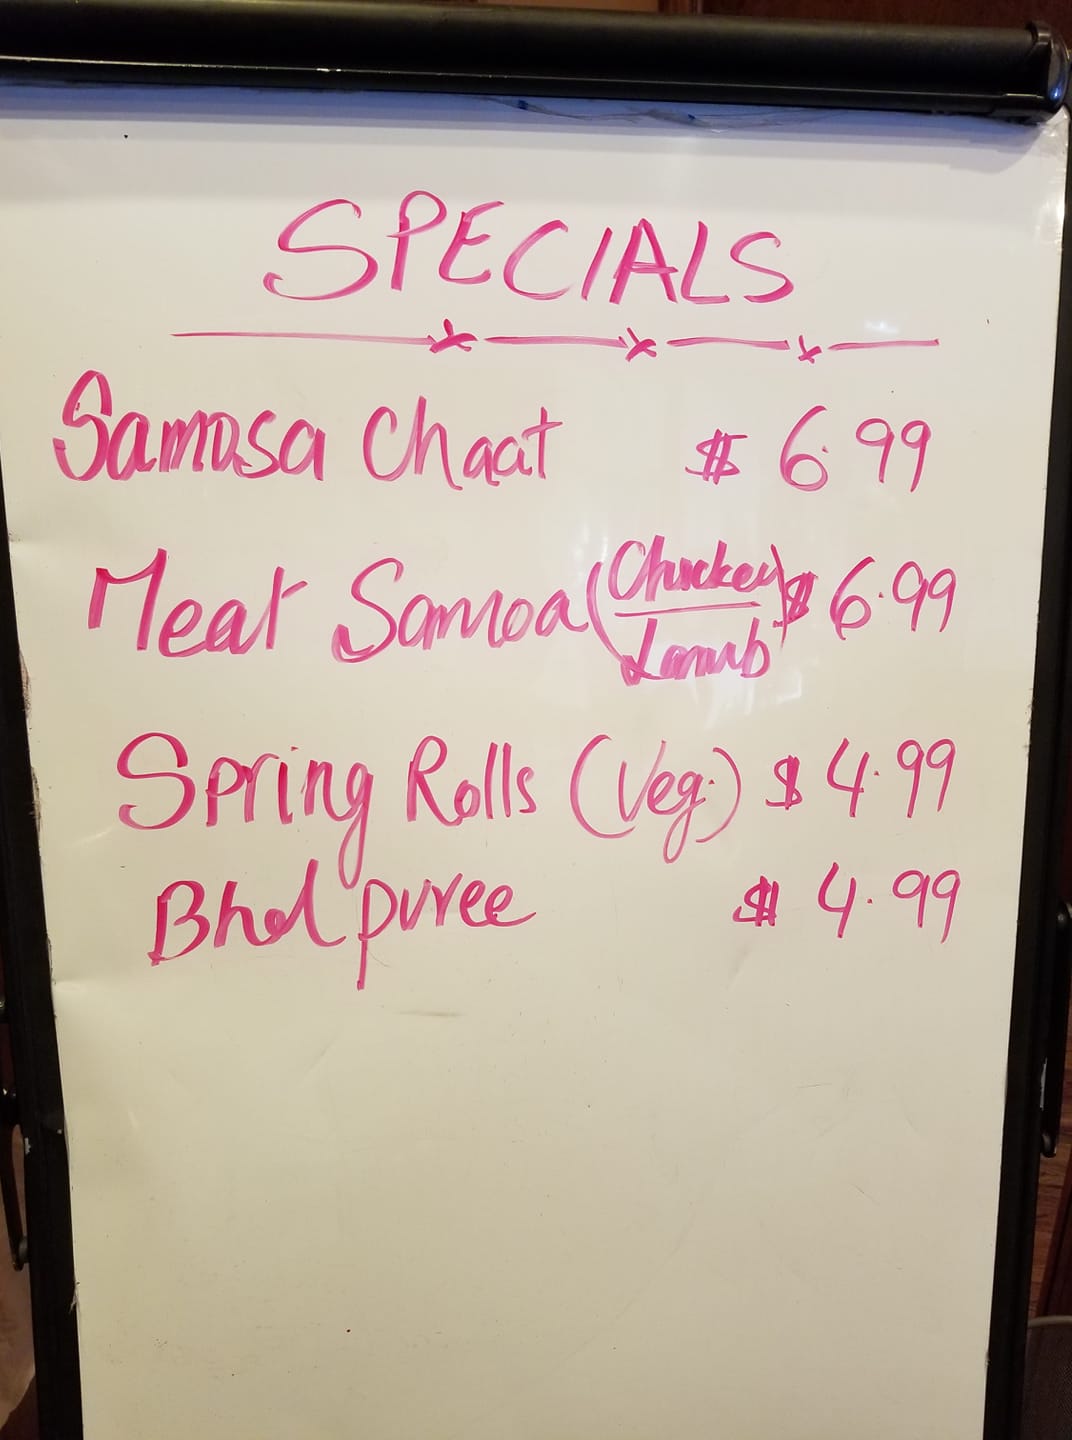 SPECIALS
Samosa Chaat $ 6.99
Meat Samoa (Chicken/Lamb) $ 6.99
Spring Rolls (Veg.) $ 4.99
Bhel puree $ 4.99